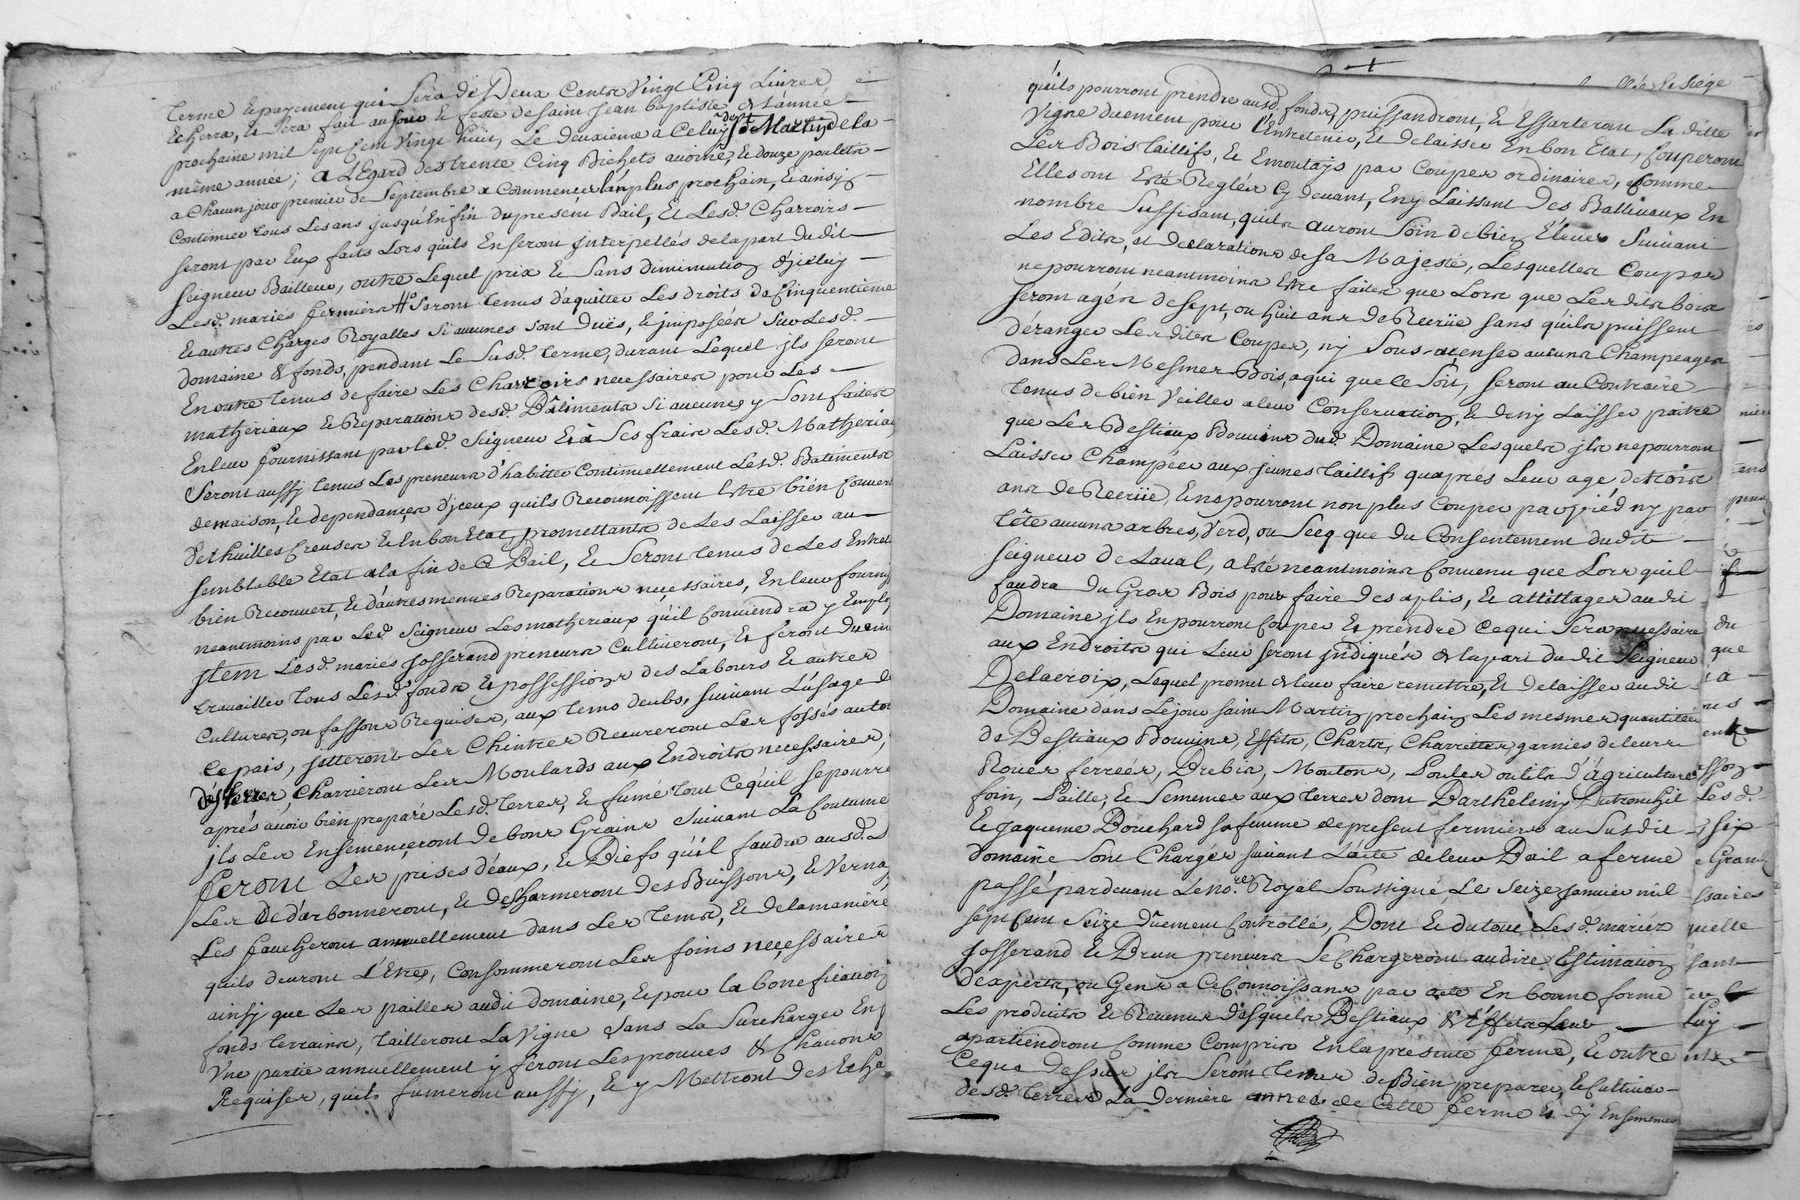 terme le payement qui Sera de Deux Cents Vingt Cinq Livres
Echerra, et Sera fait au jour et feste de saint Jean baptiste de L'année
prochaine mil Sept Cent Vingt huit, Le deuxieme a Celuy de st Martin de la
même année; a L'Egard des trente Cinq Bichets avoine, et douze poulets
a Chacun jour premier de Septembre a Commencer l'an plus prochain, et ainsy
Continuer tous Les ans jusqu'En fin du present Bail, Et Lesd. Charroirs
seront par Eux faits Lors qu'ils En seront jnterpellés de la part du dit
seigneur Bailleur, outre Lequel prix et Sans diminution d'jceluy
Lesd. mariés fermiers Seront tenus d'aquitter Les droits de Cinquentieme
et autres Charges Royalles Si aucunes sont Duës, et jmposées Sur Lesd.
domaine & fonds, pendant Le Susd. terme, durant Lequel jls seront
En outre tenus de faire Les Charroirs necessaires pour Les
matheriaux et Reparations desd. Bâtiments Si aucunes y Sont faites
En Leur fournissant par led. Seigneur Et à Ses fraix Lesd. Matheriaux
Seront aussy tenus Les preneurs d'habitter Continuellement Lesd. Batiments
de maison, et dependances d'jceux qu'ils Reconnoissent Estre bien Couverts
de thuilles Creuses et En bon Etat, promettants de Les Laisser au
semblable Etat a la fin de Ce Bail, Et Seront tenus de Les Entretenir
bien Recouvert, Et d'autres menues Reparations necessaires, En Leur fournissant
neantmoins par Led. Seigneur Les matheriaux qu'il Conviendra y Employer
jtem Lesd. mariés Josserand preneurs Cultiveront, Et feront
travailler tous Lesd. fonds Et possessions des Labours Et autres
Cultures, ou fassons Requises, aux tems deubs, suivant L'usage de
Ce pais, jetteront Les Chintres Recureront Les fossés autour
des terres, Charrieront Les Moulards aux Endroits necessaires,
aprés avoir bien preparé Lesd. terres, et fumé tout Ce qu'il Se pourra
jls Les Ensemenceront de bons Grains Suivant La Coutume
feront Les prises d'eaux, et Biefs qu'il faudra ausd.
Les et desharmeront des Buissons, et Vernes,
Les faucheront annuellement dans Les tems, Et de la maniere
qu'ils devront L'Etre, Consommeront Les foins necessaires
ainsy que Les pailles audit domaine, Et pour la bonification
fonds terrains, tailleront La Vigne Sans La Surcharger En
Une partie annuellement y feront Les prouves de Chavons
Requises, qu'ils fumeront aussy, Et y Mettront des Echa
qu'ils pourront prendre ausd. fonds, puissandront, Et Essarteront La ditte
Vigne duement pour L'Entretenir, Et delaisser En bon Etat, Couperont
Les Bois taillifs, et Emoutays par Coupes ordinaires, Comme
Elles ont Esté Reglés Cy devant, En y Laissant Des Ballivaux En
nombre Suffisant, qu'ils auront Soin de bien Elever Suivant
Les Edits, et declarations de Sa Majesté, Lesquelles Coupes
ne pourront neantmoins Estre faites que Lors que Les dits bois
Seront agés de sept, ou huit ans de Recrüe sans qu'ils puissent
déranger Les dites Coupes, ny Sous-acenser aucuns Champeages
dans Les Mesmes Bois, a qui que le Soit, Seront au Contraire
tenus de bien Veiller a leur Conservation, et de n'y Laisser paitre
que Les Bestiaux Bouvins dud. Domaine Lesquels jls ne pourront
Laisser Champéer aux jeunes taillifs qu'aprés Leur age de trois
ans de Recrüe, Et ne pourront non plus Couper par pied ny par
tête aucuns arbres, Verd, ou Secq que du Consentement dudit
Seigneur de Laval, a Esté neantmoins Convenu que Lors qu'il
faudra du Gros Bois pour faire des aplis, Et attillages au dit
Domaine jls En pourront Couper Et prendre Ce qui Sera necessaire
aux Endroits qui Leur seront jndiqués de la part dudit Seigneur
Delacroix, Lequel promet de leur faire remettre, Et delaisser audit
Domaine dans Le jour saint Martin prochain Les mesmes quantitées
de Bestiaux Bouvins, Effets, Chars, Charrettes garnies de leurs
Roues ferrées, Brebis, Moutons, Poules outils d'Agriculture
foin, Paille, et Semences aux terres dont Barthelemy
Et Jaqueme Bouchard sa femme de present fermiers au Susdit
domaine Sont Chargés suivant L'acte de leur Bail a ferme
passé pardevant Le no.re Royal Soussigné, Le Seize janvier mil
sept Cent Seize Dûement Controllé, Dont Et du tout Lesd. mariés
Josserand et Brun preneurs Se Chargeront au dire, Estimation
d'experts, ou Gens a Ce Connoissans par acte En bonne forme
Les produits et Revenus desquels Bestiaux & Effets Leur
apartiendront Comme Compris En la presente ferme, et outre
Ceque dessus jls Seront tenus de Bien preparer, et Cultiver
desd. terres La derniere année de Cette ferme Et d'y Ensemencer